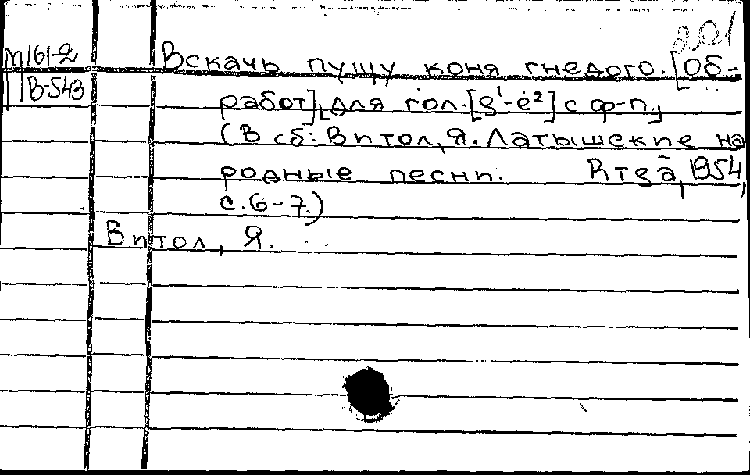 201
М161-2
В-543
Вскачь пущу коня гнедого. [Об-
работ], для гол. [g¹-e²] с ф-п.,
(В сб: Витол, Я. Латышские на
родные песни. Rīgā, 1954,
с.6-7.)
Витол, Я.